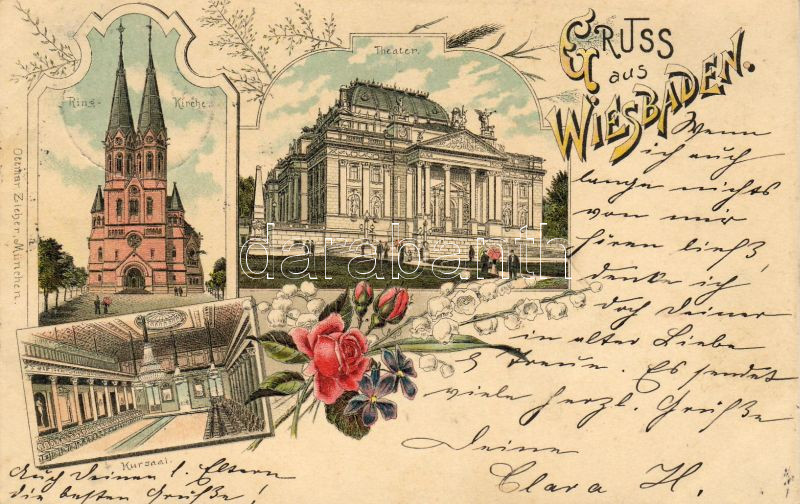 Gruss
aus
Wiesbaden.
Theater.
Ring-Kirche.
Ottmar Zieher, München.
Kursaal.
darabanth
Wenn
ich auch
lange nichts
von mir
hören ließ,
denke ich
doch Deiner
in alter Liebe
& Treue. Es sendet
viele herzl. Grüße
Deine
Clara H.
Auch Deinen l. Eltern
die besten Grüße!